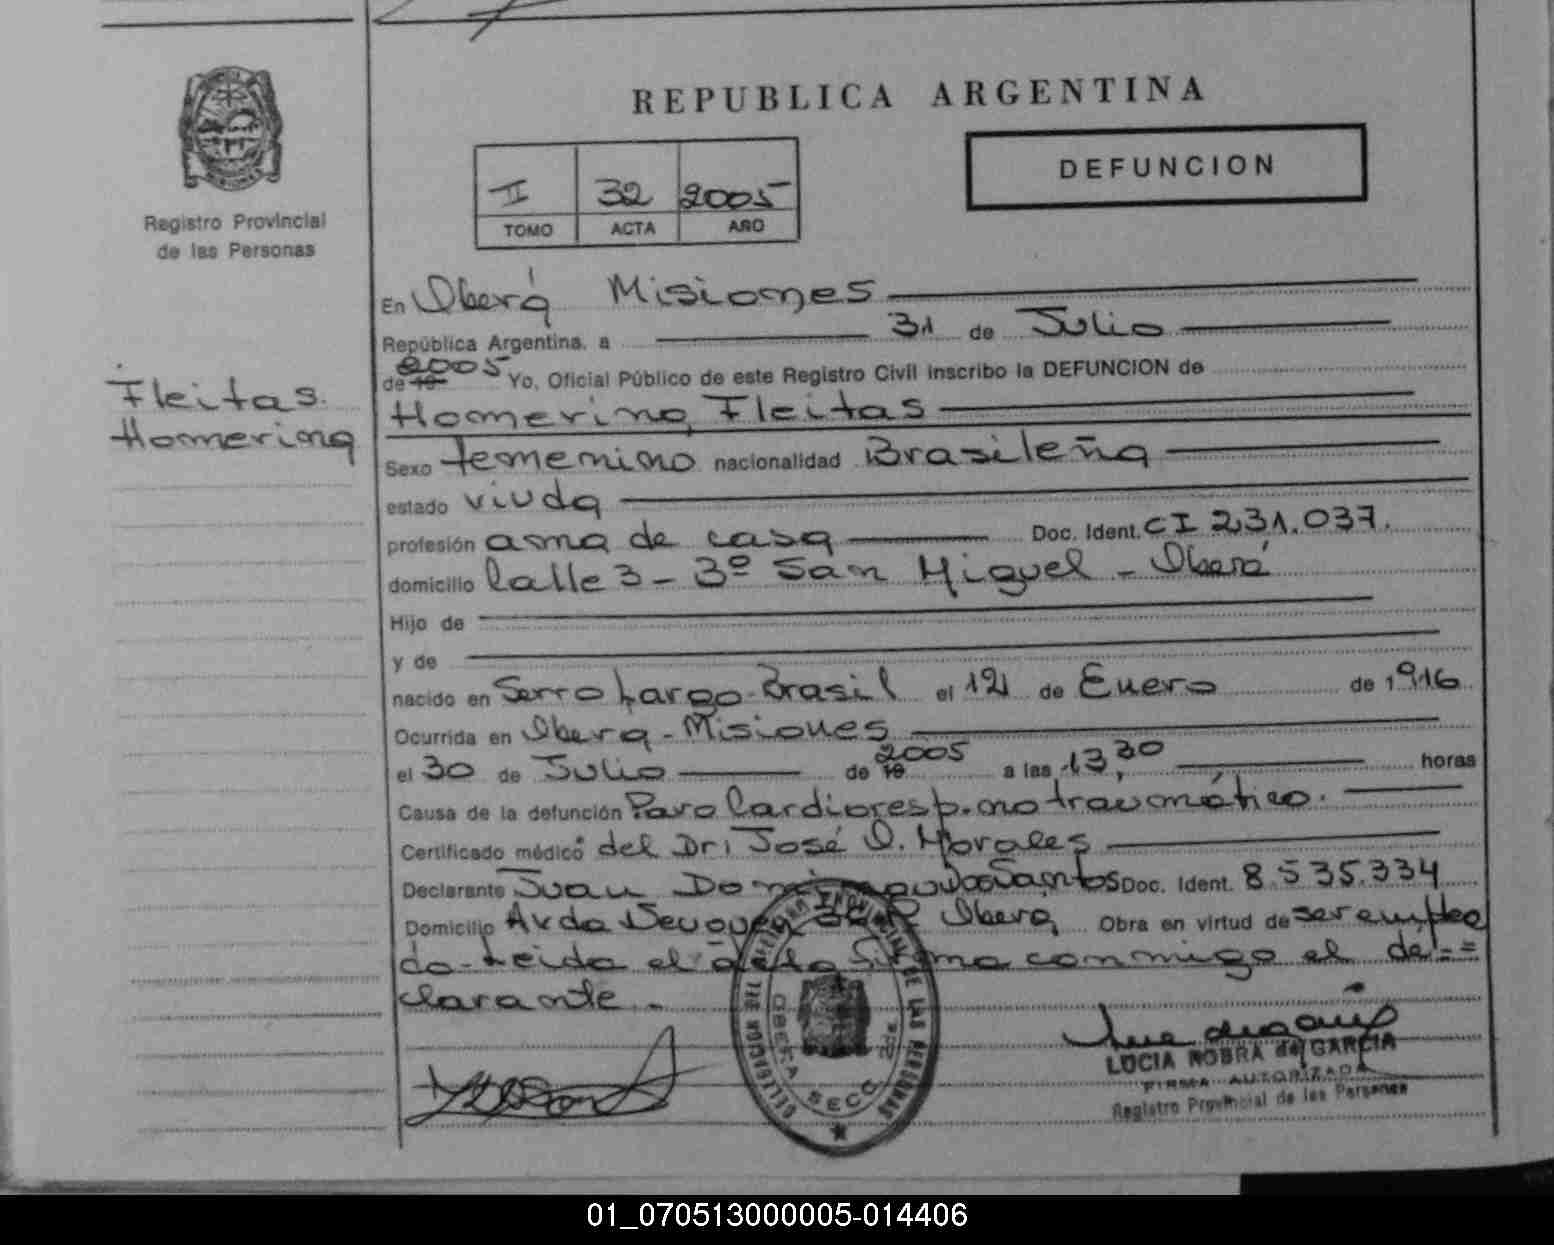 REPUBLICA ARGENTINA
DEFUNCION
II 32 2005
TOMO ACTA AÑO
Registro Provincial
de las Personas
Fleitas.
Homerina
En Oberá Misiones
República Argentina, a 31 de Julio
de 19 2005 Yo, Oficial Público de este Registro Civil inscribo la DEFUNCION de
Homerina Fleitas
Sexo femenino nacionalidad Brasileña
estado viuda
profesión ama de casa Doc. Ident. CI 231.037.
domicilio Calle 3 - 3º San Miguel - Oberá
Hijo de
y de
nacido en Serro Largo-Brasil el 12 de Enero de 1916
Ocurrida en Obera - Misiones
el 30 de Julio de 19 2005 a las 13,30 horas
Causa de la defunción Paro Cardioresp. no traumático.
Certificado médico del Dr. José O. Morales
Declarante Juan Dos Santos Doc. Ident. 8.535.334
Domicilio Avda Oberá Obra en virtud de ser emplea
do-Leida el acta firma conmigo el de=
clarante.-
DELEGACION DEL REGISTRO PROVINCIAL DE LAS PERSONAS
OBERA SECC. 2da.
LUCIA ROBRA de GARCIA
FIRMA AUTORIZADA
Registro Provincial de las Personas
01_070513000005-014406